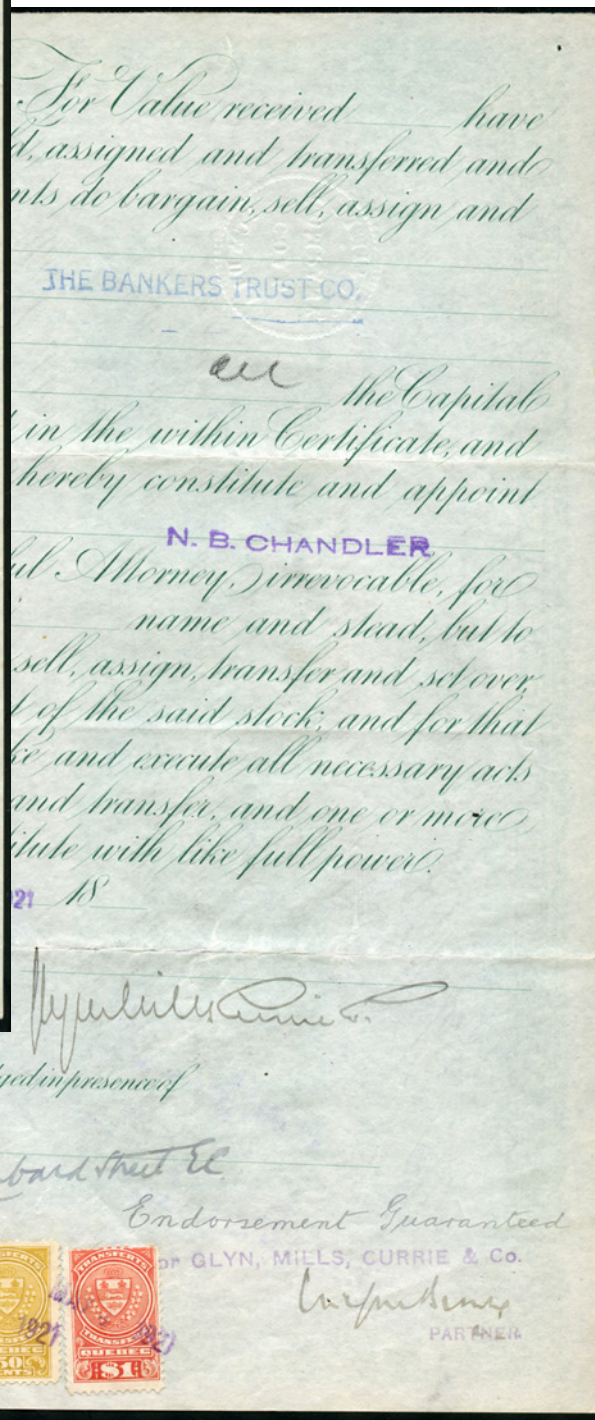 For Value received have
d, assigned and transferred and
nts do bargain, sell, assign and
THE BANKERS TRUST CO.
all
the Capital
in the within Certificate, and
hereby constitute and appoint
N. B. CHANDLER
ul Attorney, irrevocable, for
name and stead, but to
sell, assign, transfer and set over,
t of the said stock; and for that
ke and execute all necessary acts
and transfer, and one or more
itute with like full power.
921 18
Glyn Mills Currie & Co.
ged in presence of
bard Street EC
Endorsement Guaranteed
or GLYN, MILLS, CURRIE & Co.
PARTNER
TRANSFERTS
TRANSFERS
QUEBEC
50
CENTS
1921
TRANSFERTS
TRANSFERS
QUEBEC
$1
1921